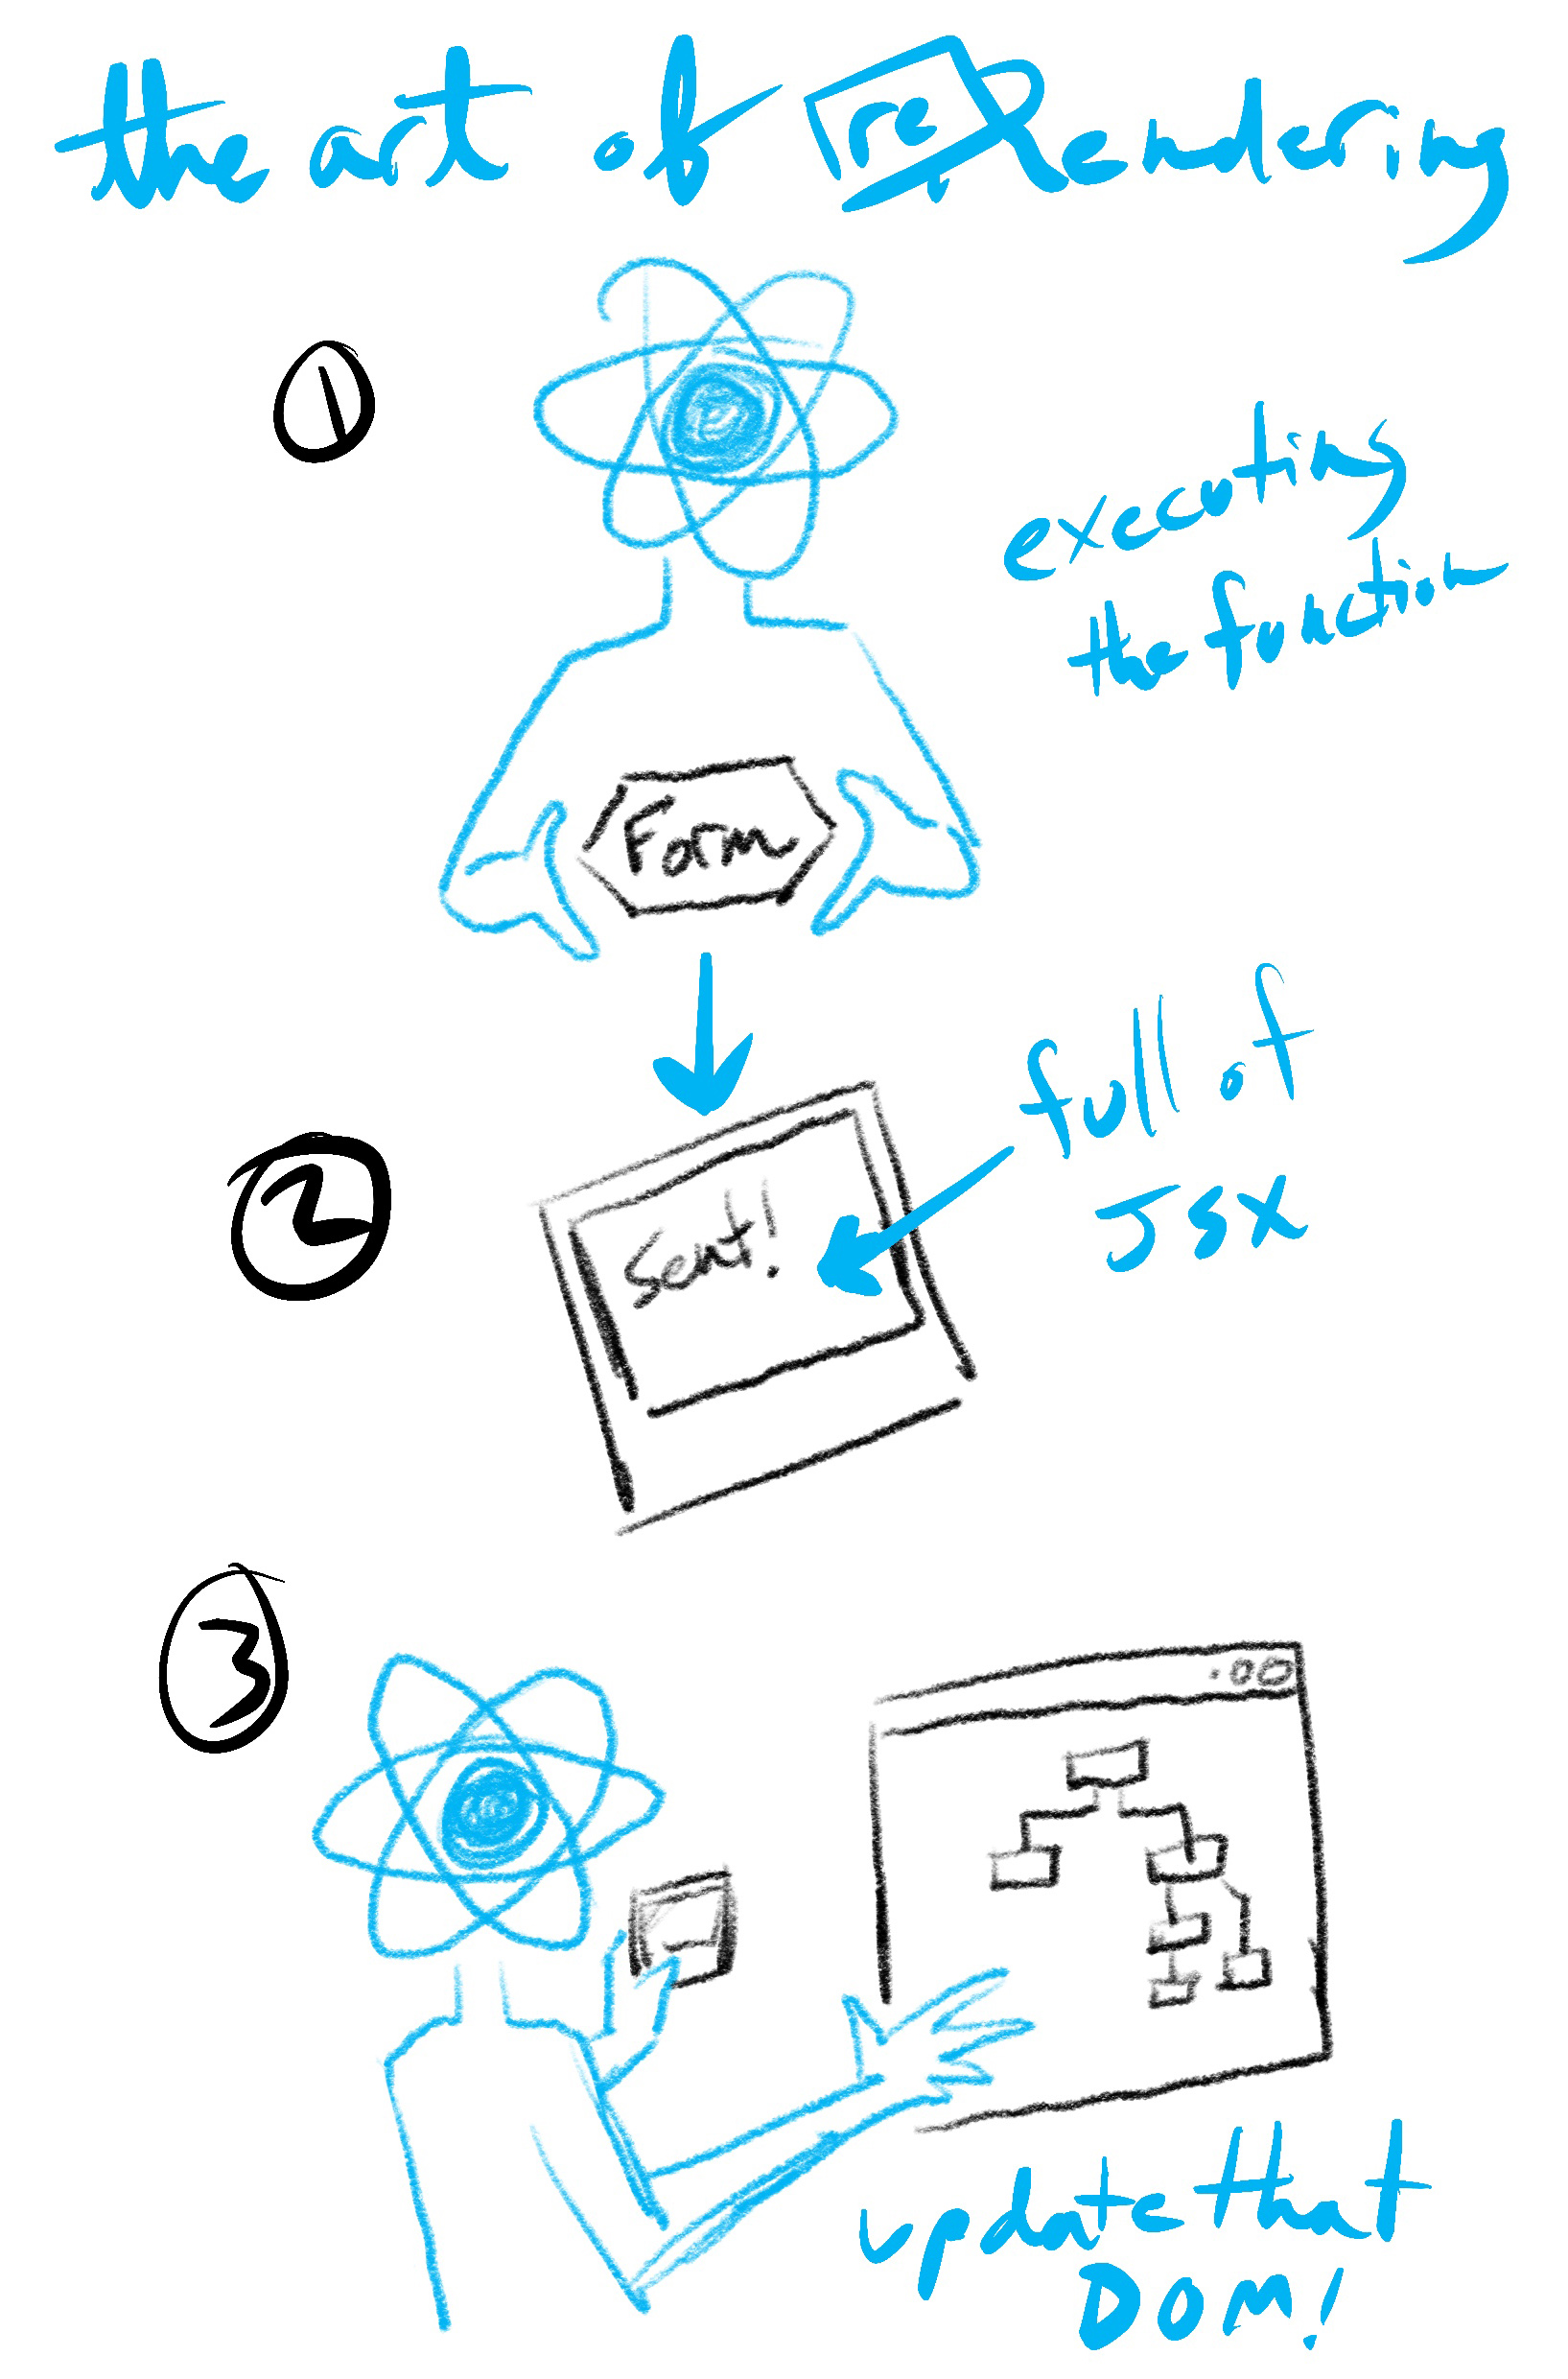 the art of re Rendering
1
executing
the function
Form
2
full of
JSX
Sent!
3
update that
DOM!